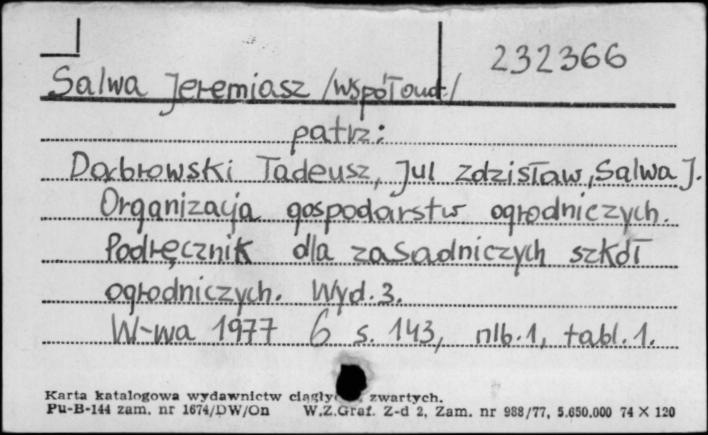 232366
Salwa Jeremiasz /współaut/
patrz:
Dąbrowski Tadeusz, Jul Zdzisław, Salwa J.
Organizacja gospodarstw ogrodniczych.
Podręcznik dla zasadniczych szkół
ogrodniczych. Wyd. 3.
W-wa 1977 6 s. 143, nlb. 1, tabl. 1.
Karta katalogowa wydawnictw zwartych.
Pu-B-144 zam. nr 1674/DW/On W.Z.Graf. Z-d 2, Zam. nr 988/77, 5.650.000 74 X 120